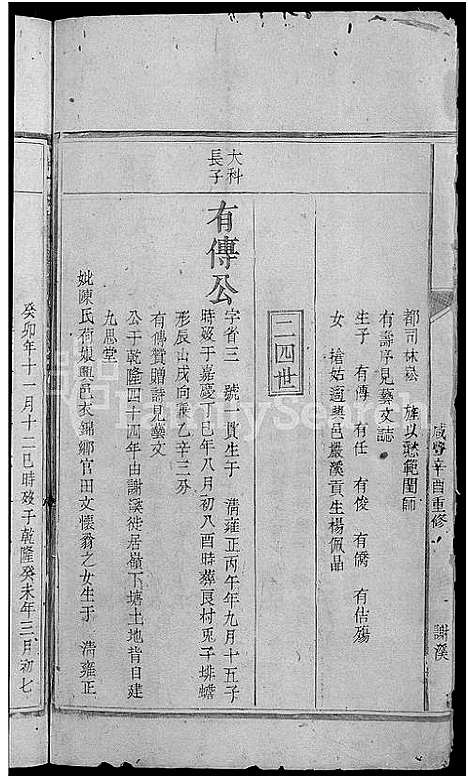 咸豐辛酉重修
謝溪
都司林崧 旌以懿範閨師
有壽序見藝文誌
生子 有傳 有任 有俊 有儒 有估殤
女 搶姑適興邑嚴溪貢生楊佩晶
二四世
大科長子
有傳公
字省三 號一貫生于 清雍正丙午年九月十五子
時歿于嘉慶丁巳年八月初八酉時葬良村兎子排蟾
形辰山戌向兼乙辛三分
有傳贊贈詩見藝文
公于乾隆四十四年由謝溪徙居嶺下塘土地背自建
九思堂
妣陳氏荷娘興邑衣錦鄉官田文懷翁之女生于 清雍正
癸卯年十一月十二巳時歿于乾隆癸未年三月初七
FamilySearch